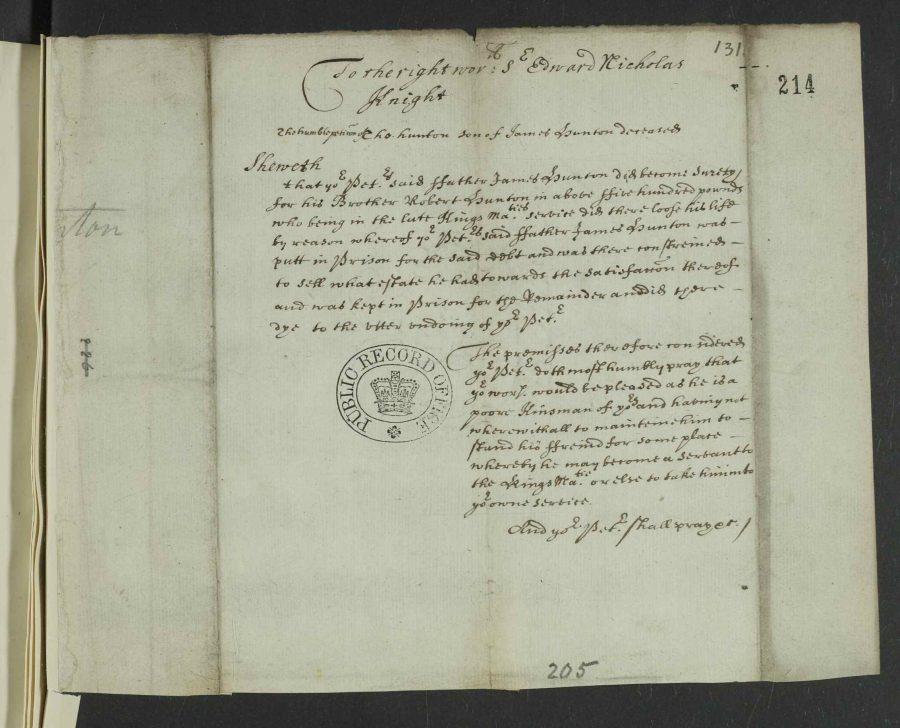 131
214
To the right worll: Sr Edward Nicholas
Knight
The humble petion of Tho: Hunton son of James Hunton deceased
Sheweth
that yor Petrs said ffather James Hunton did become surety
for his Brother Robert Hunton in above ffive hundred pownds
who being in the late Kings Maties service did there loose his life
by reason whereof yor Petrs said ffather James Hunton was
putt in Prison for the said debt and was there constreined
to sell what estate he had towards the satisfaccon thereof
and was kept in Prison for the Remainder and did there
dye to the utter undoing of yor Petr
The premisses therefore considered
yor Petr doth most humbly pray that
yor worp. would be pleased as he is a
poore Kinsman of yors and having not
wherewithall to mainteine him to
stand his ffreind for some place
whereby he may become a servant to
the Kings Matie or else to take him into
yor owne service.
And yor Petr shall pray &c. /
PUBLIC RECORD OFFICE
nton
205